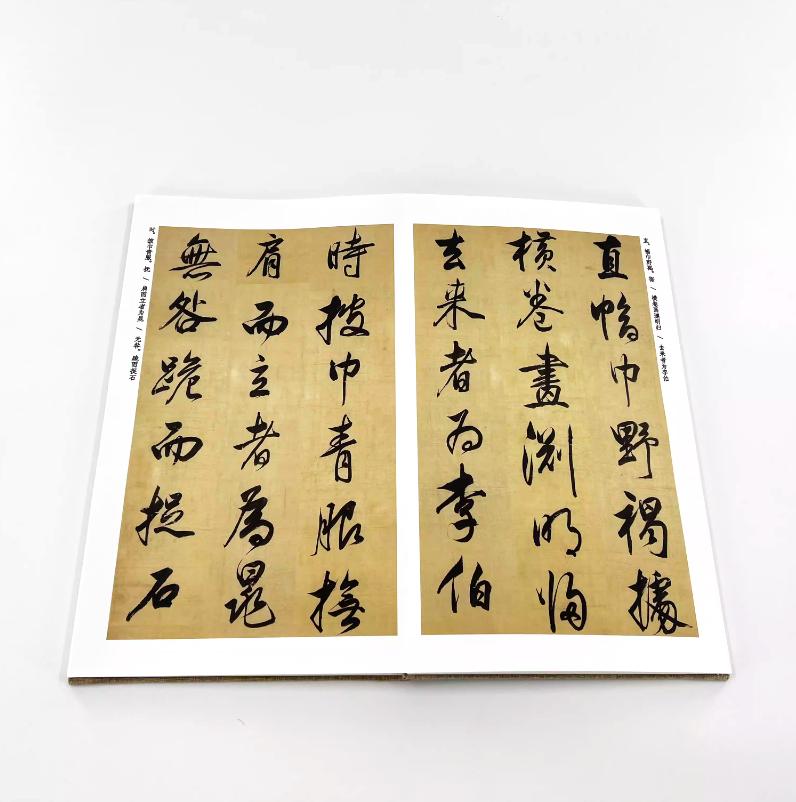 直。幅巾野褐。据 / 横卷画渊明归 / 去来者为李伯
直幅巾野褐據
橫卷畫淵明歸
去来者為李伯
時披巾青服撫
肩而立者為晁
無咎跪而捉石
时。披巾青服。抚 / 肩而立者为晁 / 无咎。跪而捉石